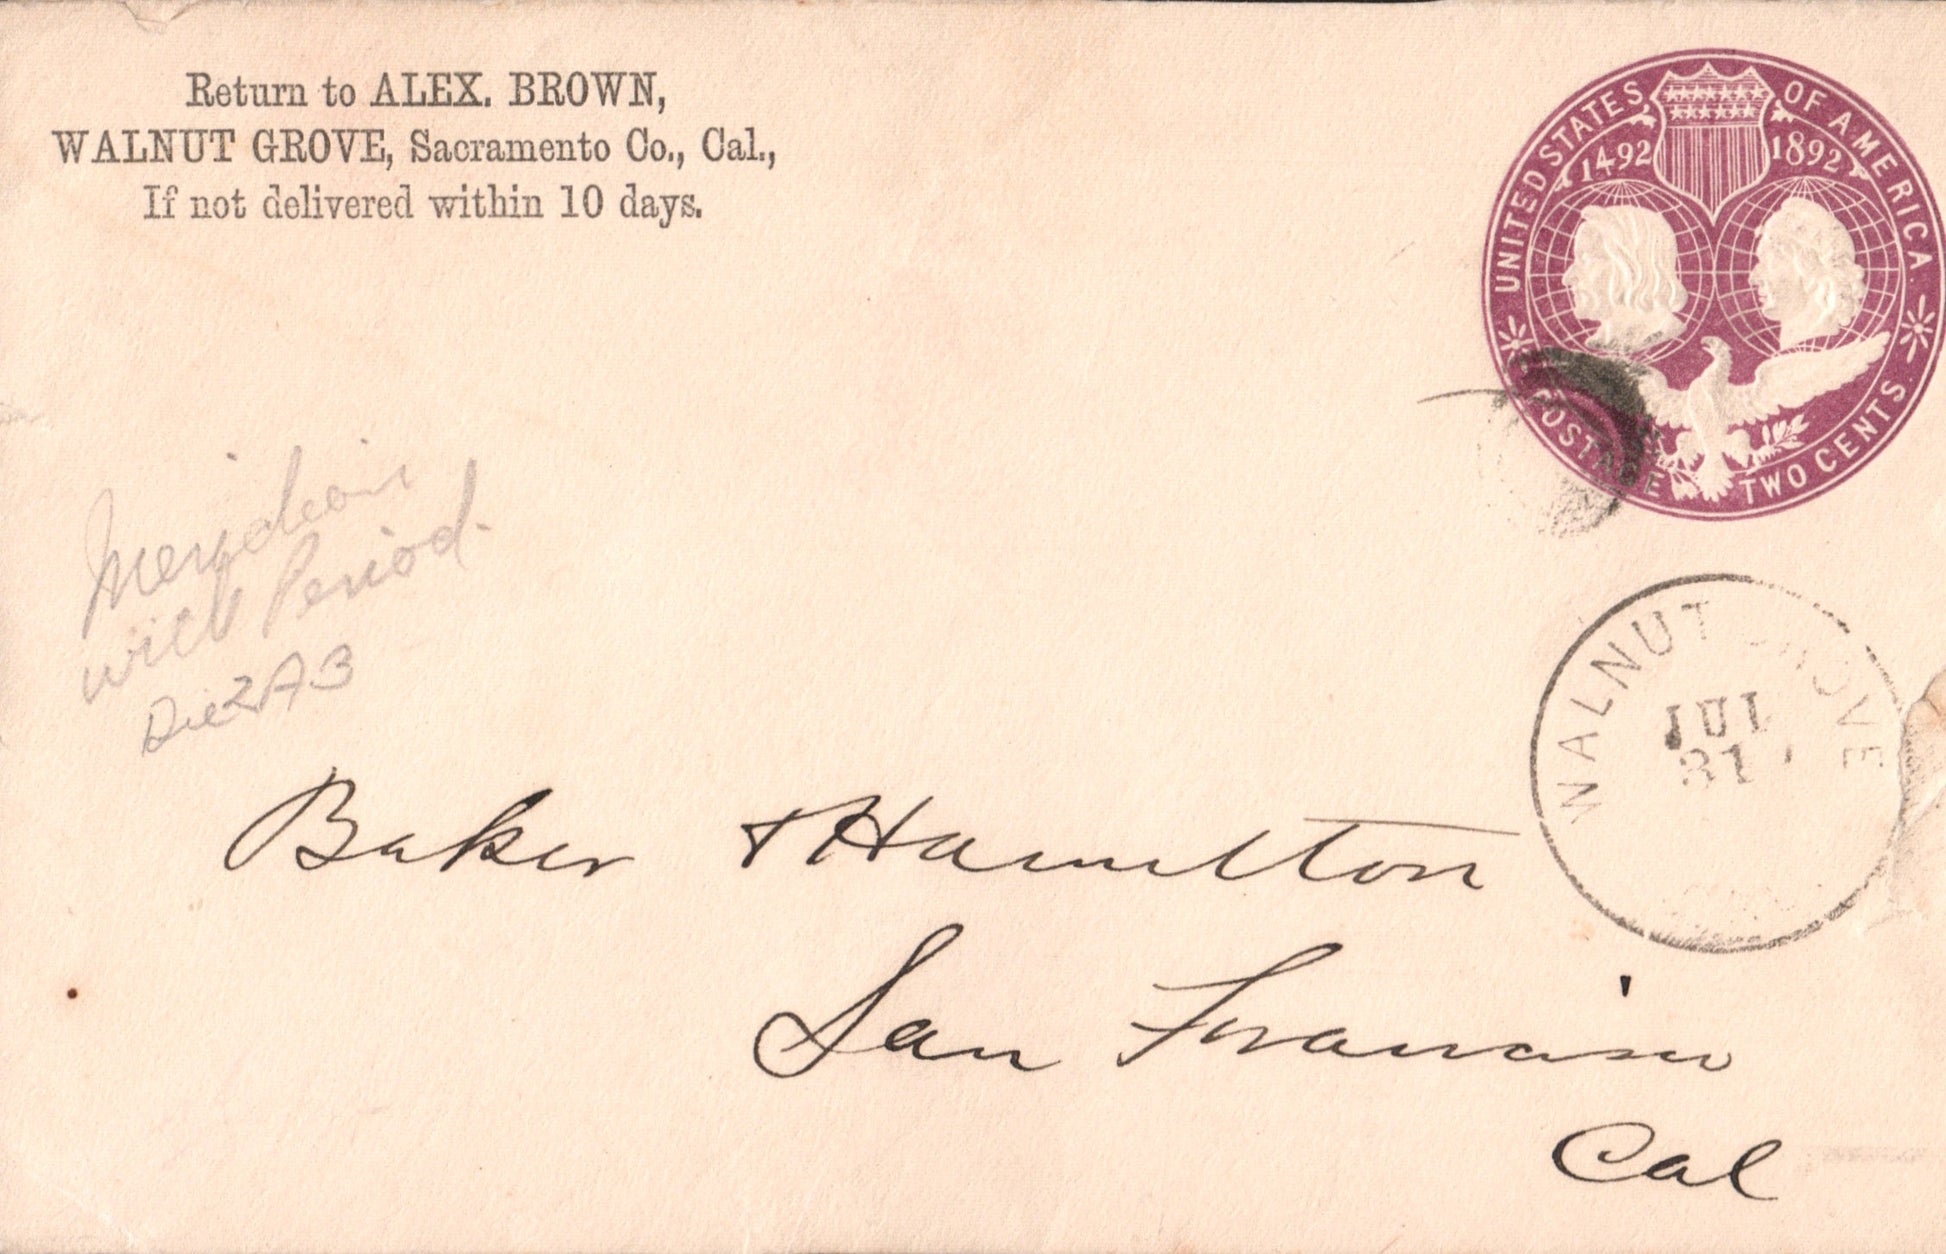 Return to ALEX. BROWN,
WALNUT GROVE, Sacramento Co., Cal.,
If not delivered within 10 days.
UNITED STATES OF AMERICA.
1492 1892
POSTAGE TWO CENTS.
with Period.
Die 2A3
WALNUT GROVE
JUL
31
Baker & Hamilton
San Francisco
Cal